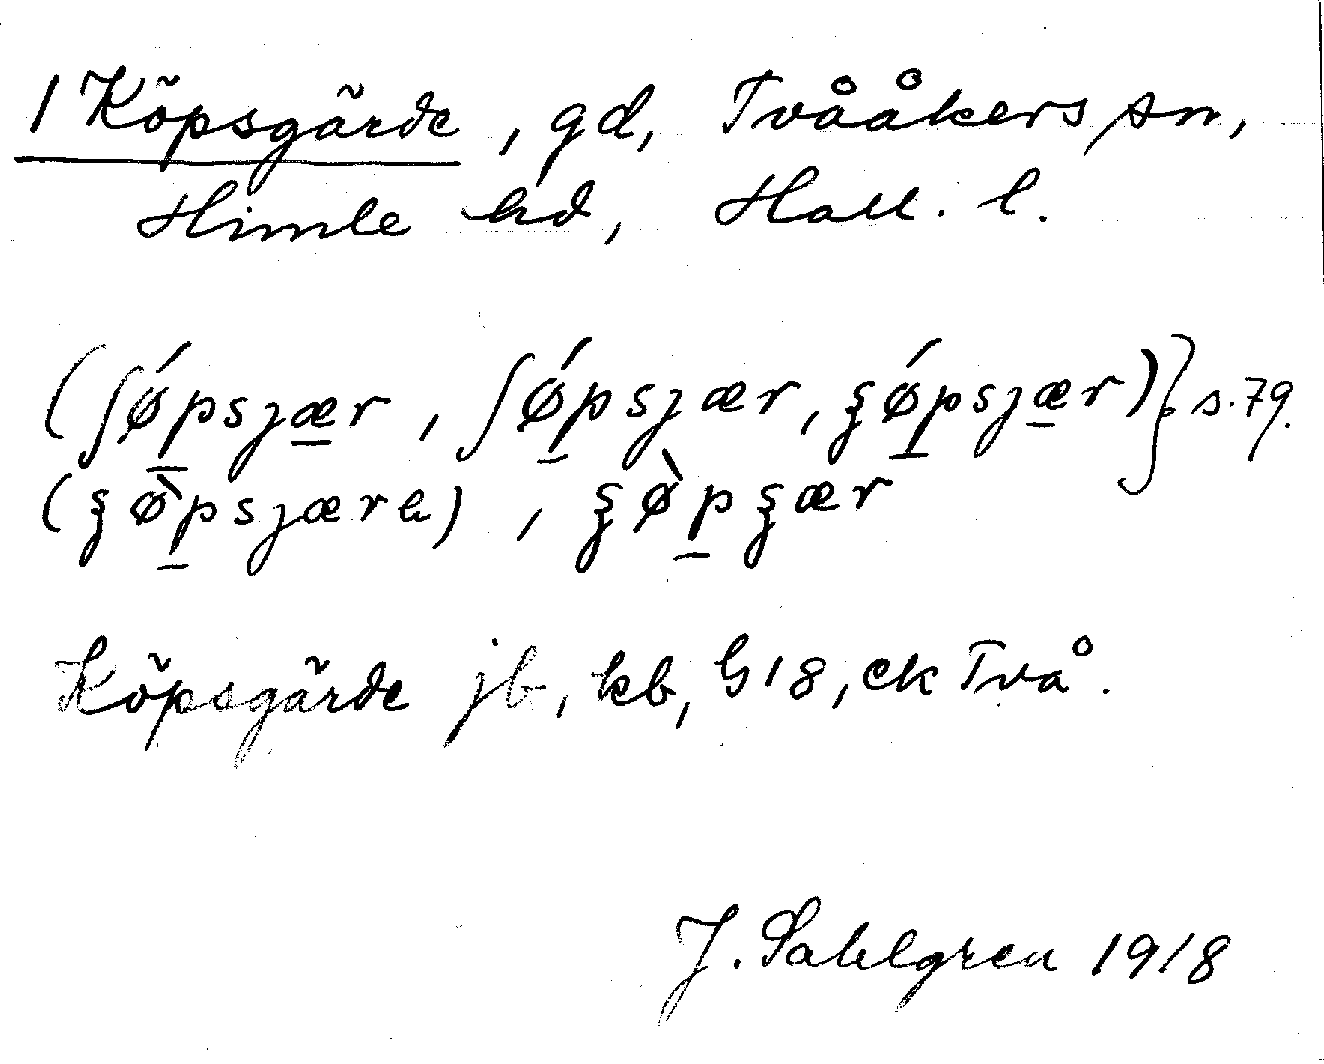 1 Köpsgärde, gd, Tvååkers sn,
Himle hd, Hall. l.
(ʃǿpsȷær, ʃǿpsȷær, ʂǿpsȷær)} s. 79.
(ʂø̀psȷærə), ʂø̀pʂær
Köpsgärde jb, kb, G18, ck Två.
J. Sahlgren 1918